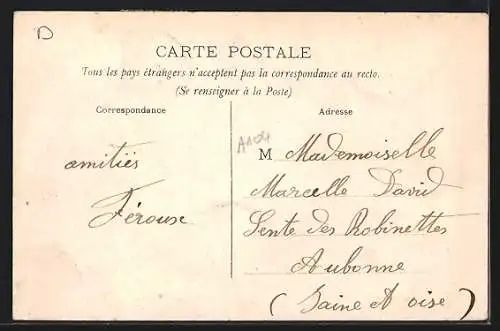 D
CARTE POSTALE
Tous les pays étrangers n'acceptent pas la correspondance au recto.
(Se renseigner à la Poste)
Correspondance
Adresse
A104
M Mademoiselle
amitiés
Marcelle David
Férouse
Sente des Robinettes
Aubonne
(Saine et oise)